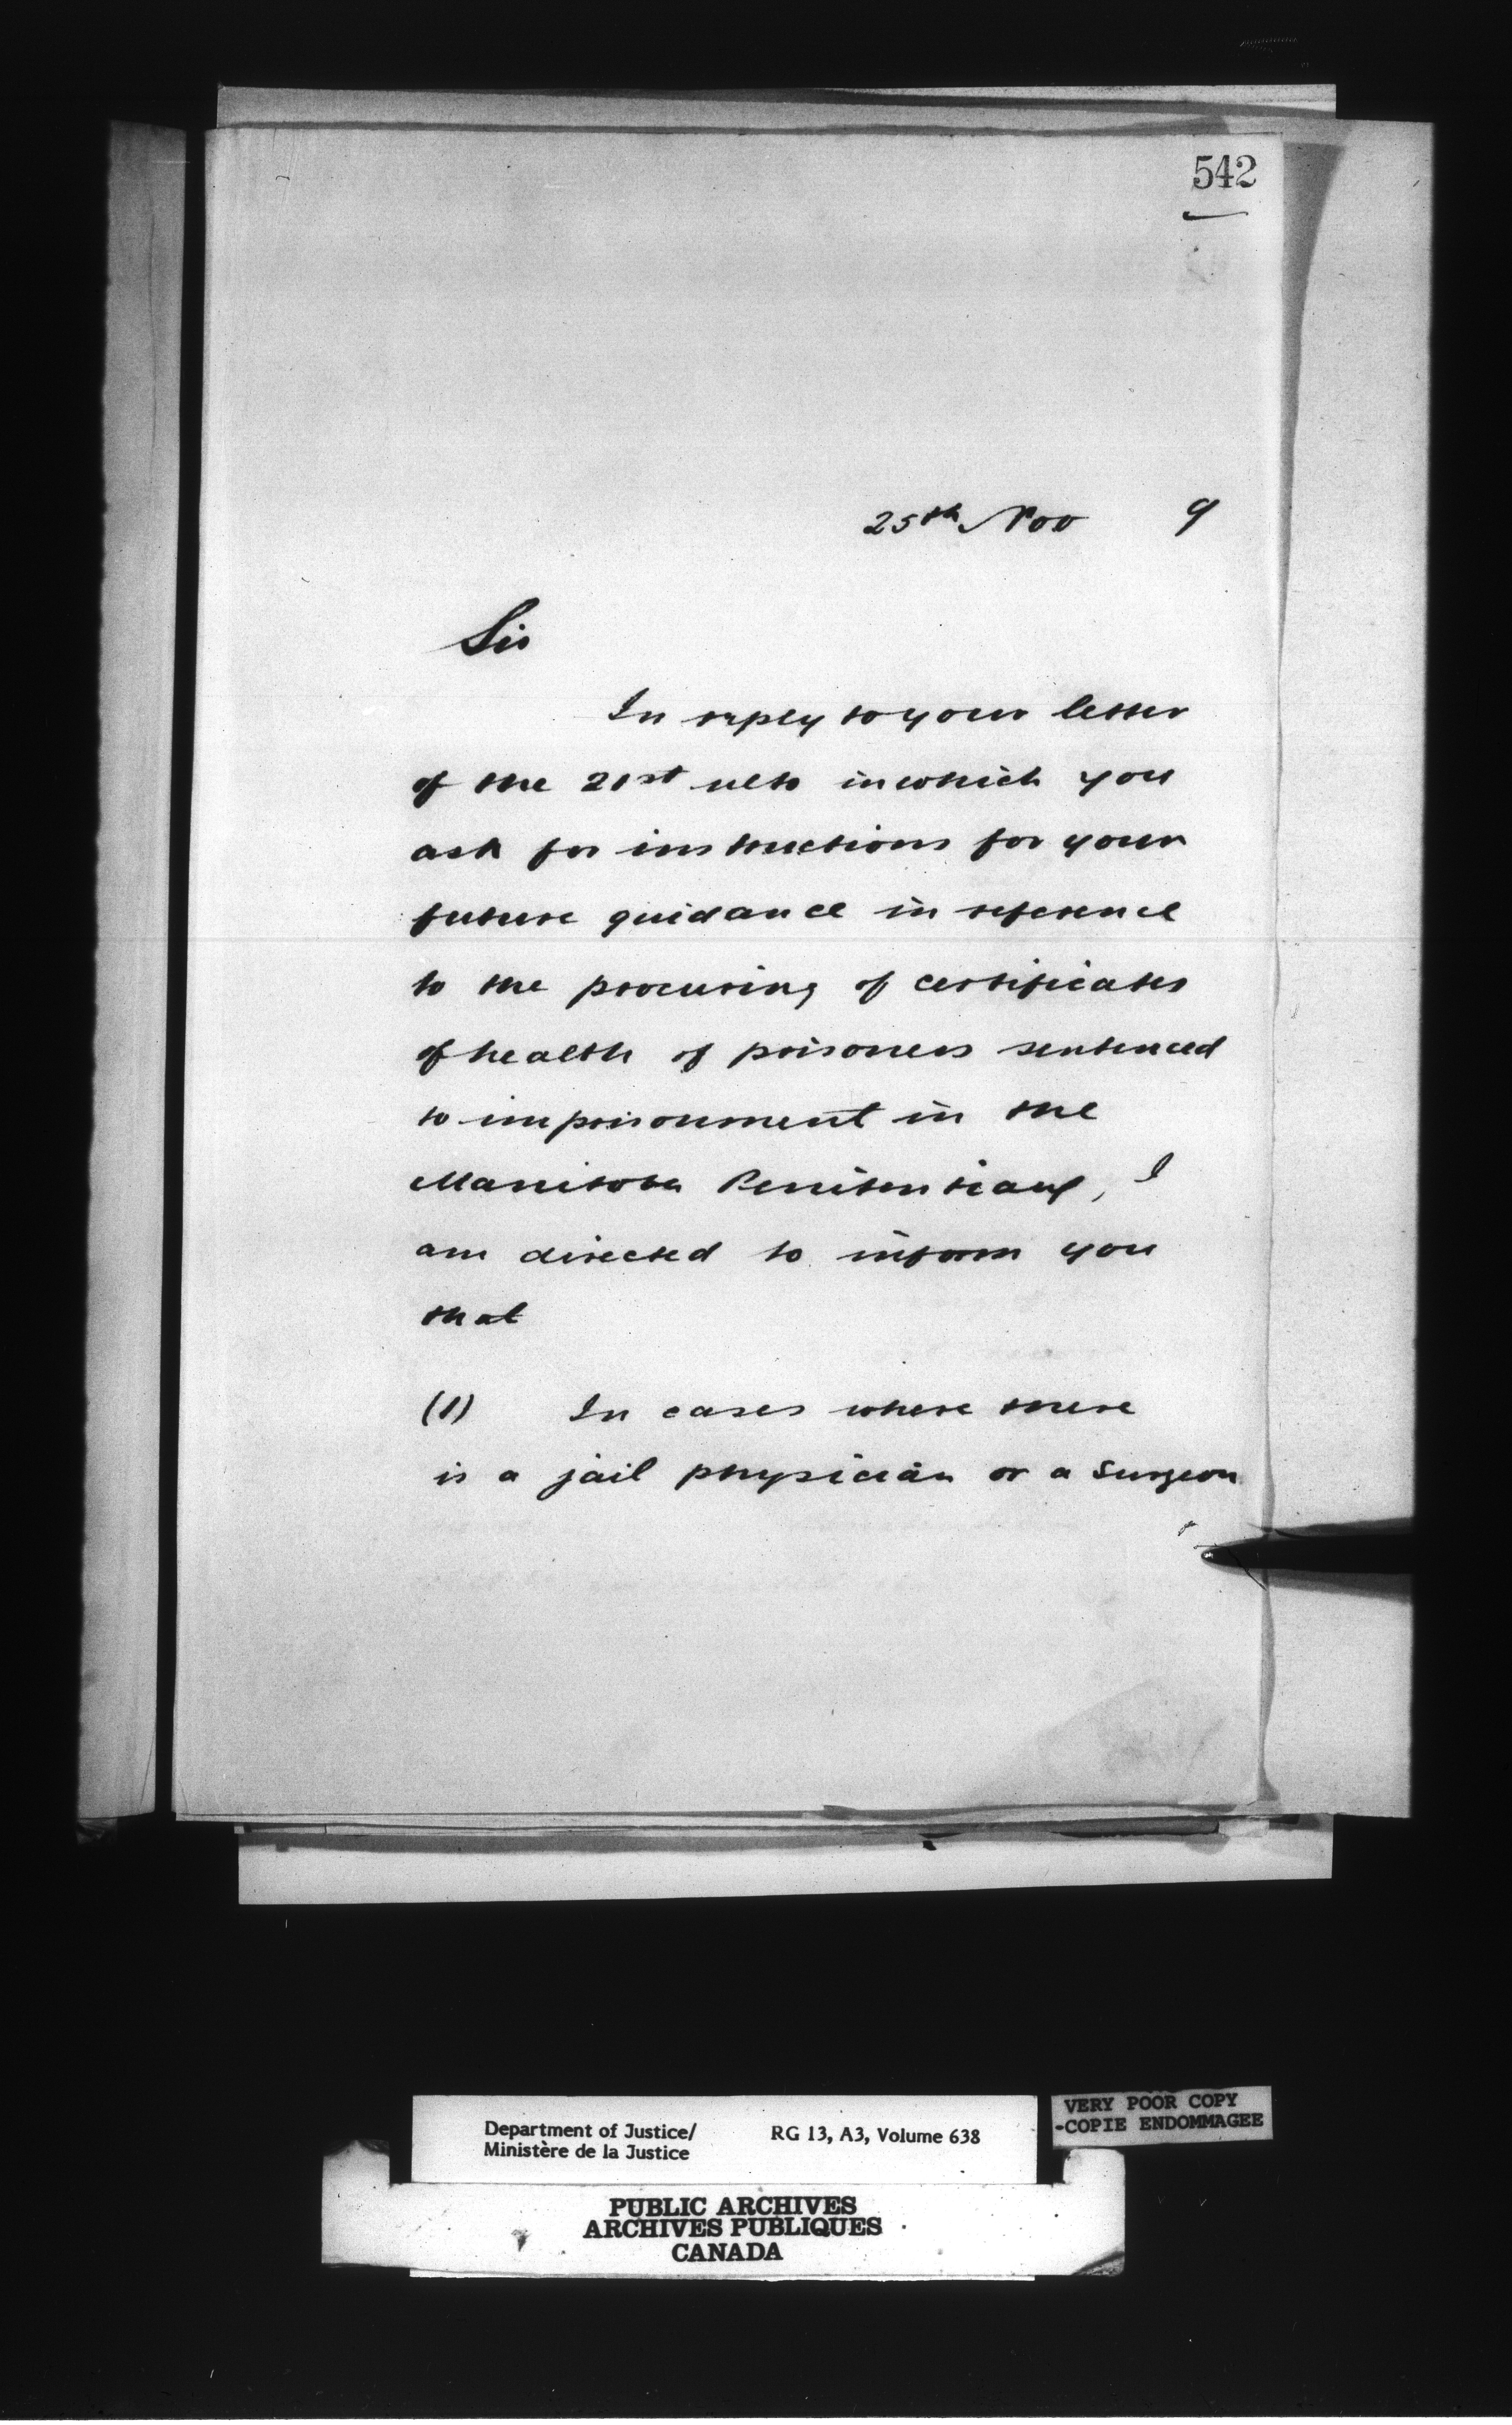 542
25th Nov 9
Sir
In reply to your letter
of the 21st ulto in which you
ask for instructions for your
future guidance in reference
to the procuring of certificates
of health of prisoners sentenced
to imprisonment in the
Manitoba Penitentiary, I
am directed to inform you
that
(1) In cases where there
is a jail physician or a Surgeon
Department of Justice/ RG 13, A3, Volume 638
Ministère de la Justice
VERY POOR COPY
-COPIE ENDOMMAGEE
PUBLIC ARCHIVES
ARCHIVES PUBLIQUES
CANADA